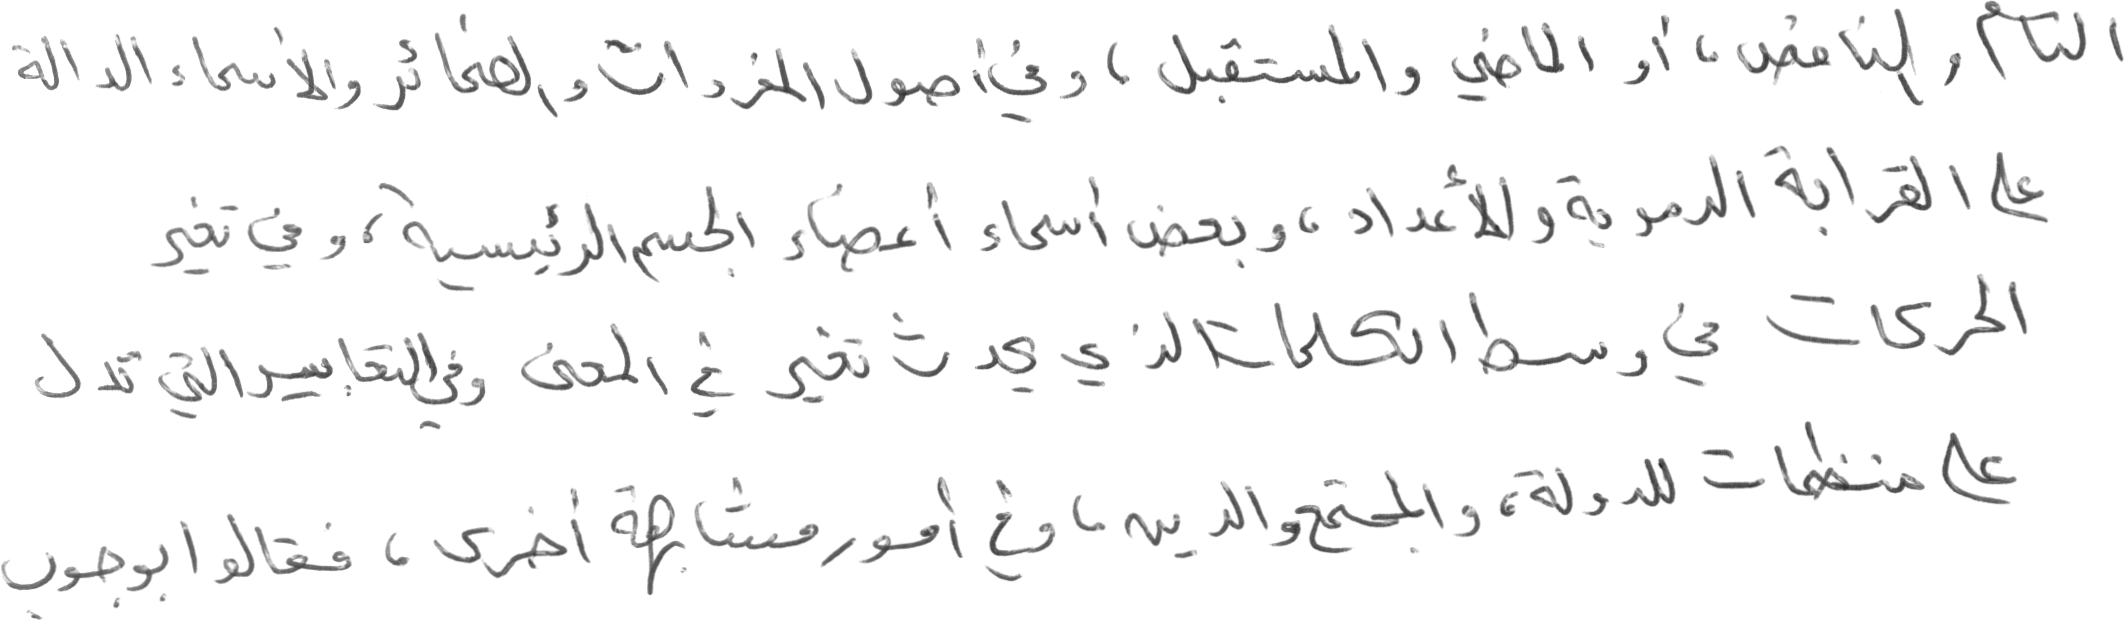 التام والناقص، أو الماضي والمستقبل، وفي أصول المفردات والضمائر والأسماء الدالة
على القرابة الدموية وللأعداد، وبعض أسماء أعضاء الجسم الرئيسية، وفي تغير
الحركات في وسط الكلمات الذي يحدث تغير في المعنى وفي التعابير التي تدل
على منظمات للدولة، والمجتمع والدين، وفي أمور مشابهة أخرى، فقالوا بوجوب